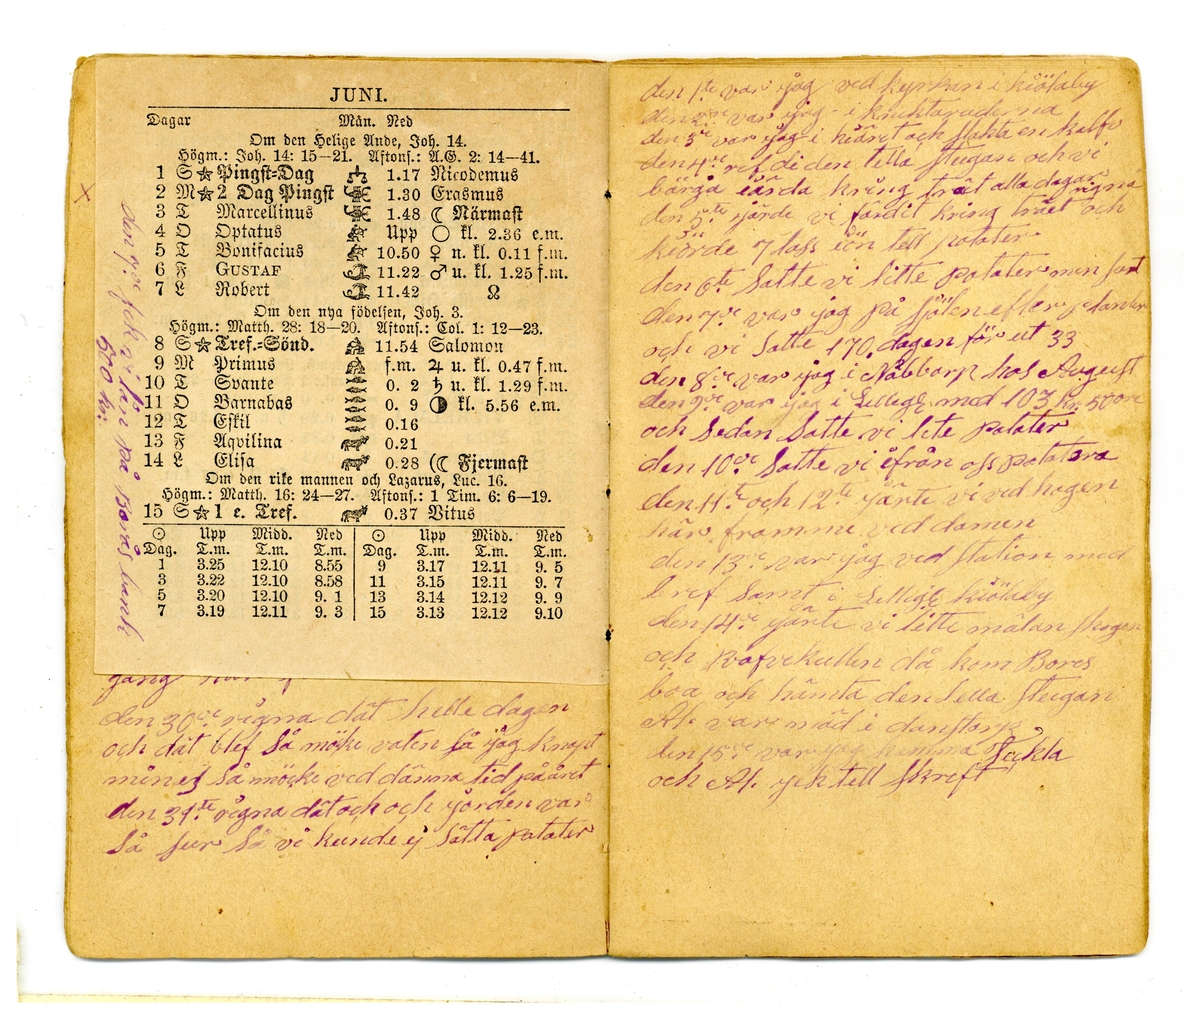 JUNI.
Dagar Mån. Ned
Om den Helige Ande, Joh. 14.
Högm.: Joh. 14: 15—21. Aftons.: A.G. 2: 14—41.
1 S ☆ Pingst-Dag ♎ 1.17 Nicodemus
2 M ☆ 2 Dag Pingst 1.30 Erasmus
3 T Marcellinus 1.48 ☾ Närmast
4 O Optatus Upp ○ kl. 2.36 e.m.
5 T Bonifacius 10.50 ♀ n. kl. 0.11 f.m.
6 F GUSTAF 11.22 ♂ u. kl. 1.25 f.m.
7 L Robert 11.42 ☊
Om den nya födelsen, Joh. 3.
Högm.: Matth. 28: 18—20. Aftons.: Col. 1: 12—23.
8 S ☆ Tref.=Sönd. 11.54 Salomon
9 M Primus f.m. ♃ u. kl. 0.47 f.m.
10 T Svante 0. 2 ♄ u. kl. 1.29 f.m.
11 O Barnabas 0. 9 ◑ kl. 5.56 e.m.
12 T Eskil 0.16
13 F Aqvilina 0.21
14 L Elisa 0.28 (☾ Fjermast
Om den rike mannen och Lazarus, Luc. 16.
Högm.: Matth. 16: 24—27. Aftons.: 1 Tim. 6: 6—19.
15 S ☆ 1 e. Tref. 0.37 Vitus
☉ Upp Midd. Ned ☉ Upp Midd. Ned
Dag. T.m. T.m. T.m. Dag. T.m. T.m. T.m.
1 3.25 12.10 8.55 9 3.17 12.11 9. 5
3 3.22 12.10 8.58 11 3.15 12.11 9. 7
5 3.20 12.10 9. 1 13 3.14 12.12 9. 9
7 3.19 12.11 9. 3 15 3.13 12.12 9.10
x
den 9de fek vi lån på Borås bank
570 kr.
gång
den 30de rägna dät helle dagen
och dät blef så möcke vaten så jäg knapt
mines så möcke ved dänna tid på året
den 31te rägna dät och och jörden var
så sur så vi kunde ej sätta potater
den 1te var jäg ved kyrkan i kiölaby
den 2dre var jäg i
den 3de var jäg i kiäret och slakta en kalfv
den 4de ref di den lella stugan och vi
bärga järda kring trät alla dagar rägna
den 5te järde vi färdit kring träet och
kiörde 7 lass iön tell potater
den 6te Satte vi litte potater men
den 7de var jäg på sjölen efter planter
och vi Satte 170 dagen för ut 33
den 8de var jäg i Nåbbarp hos August
den 9de var jäg i med 103 kr 50 öre
och Sedan Satte vi lite potater
den 10de Satte vi ifrån oss potatera
den 11te och 12te järte vi ved hagen
här framme ved damen
den 13de var jäg ved station med
bref samt i kiölaby
den 14de järte vi litte mälan skogen
och då kom Bores
boa och hämta den lella stugan
At. var mäd i danstorp
den 15de var jäg hemma
och At. gek tell skreft